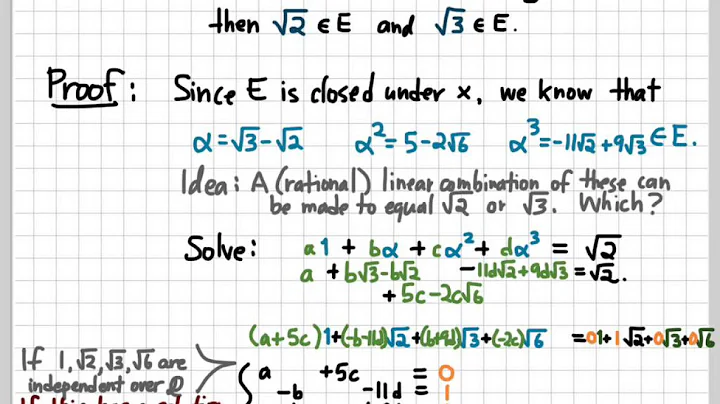 then √2 ∈ E and √3 ∈ E.
Proof: Since E is closed under x, we know that
α = √3 - √2 α² = 5 - 2√6 α³ = -11√2 + 9√3 ∈ E.
Idea: A (rational) linear combination of these can
be made to equal √2 or √3. Which?
Solve: a1 + bα + cα² + dα³ = √2
a + b√3 - b√2 - 11d√2 + 9d√3 = √2.
+ 5c - 2c√6
(a+5c)1 + (-b-11d)√2 + (b+9d)√3 + (-2c)√6 = 01 + 1√2 + 0√3 + 0√6
If 1, √2, √3, √6 are
independent over ℚ
a + 5c = 0
-b - 11d = 1